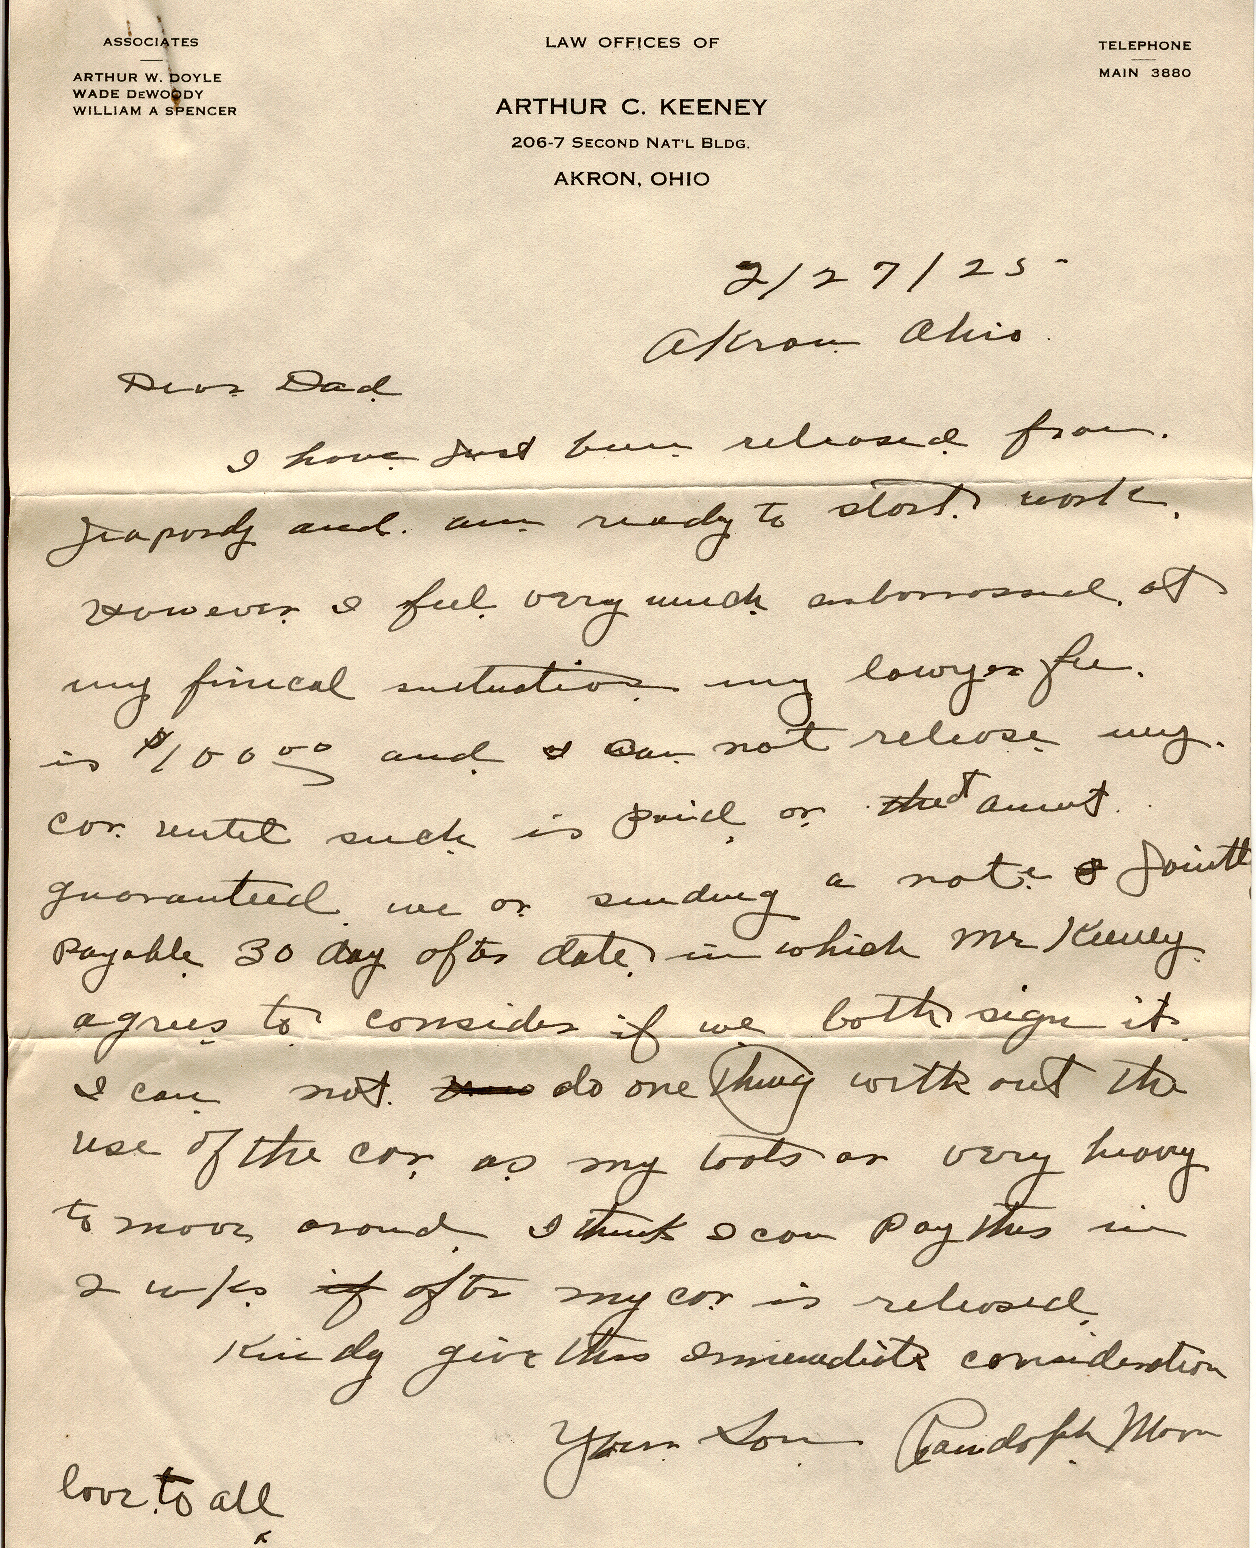 ASSOCIATES
ARTHUR W. DOYLE
WADE DEWOODY
WILLIAM A SPENCER
LAW OFFICES OF
ARTHUR C. KEENEY
206-7 SECOND NAT'L BLDG.
AKRON, OHIO
TELEPHONE
MAIN 3880
2/27/25
Akron Ohio.
Dear Dad
I have just been released from
Jeapordy and am ready to start work.
However I feel very much embarrassed at
my finical situation my lawyer fee
is $100.00 and I can not release my
car until such is paid or that amut
guaranteed we or sending a note Jointly
payable 30 day after date in which Mr Keeney
agrees to consider if we both sign it.
I can not do one thing without the
use of the car as my tools ar very heavy
to move around I think I can pay this in
2 wks if after my car is released
Kindy give this Immediate consideration
Your Son Randolph Moon
love to all